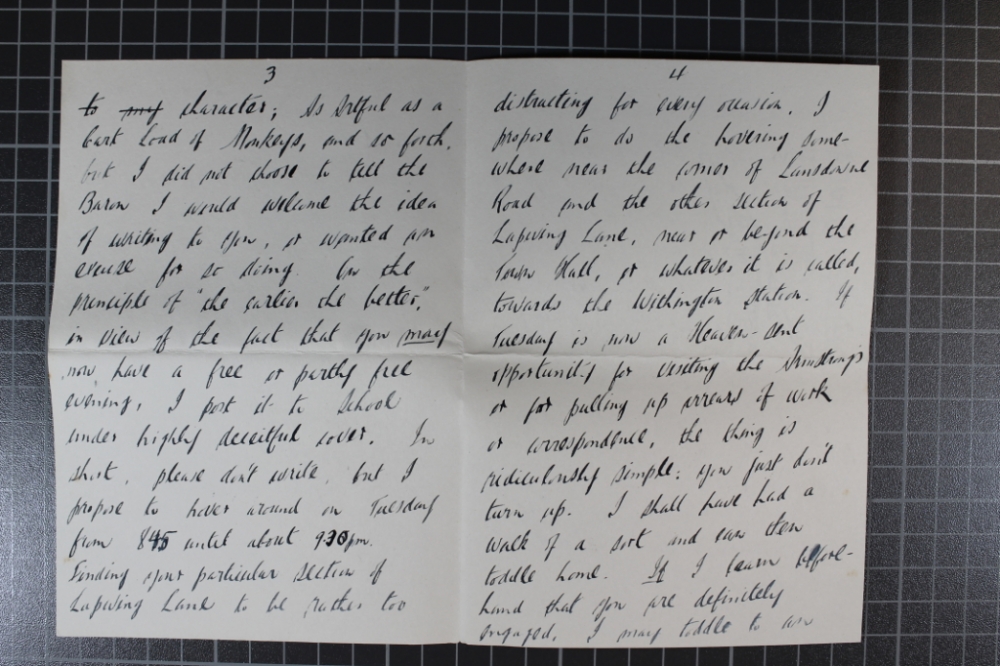 3
to my character; As Artful as a
Cart Load of Monkeys, and so forth,
but I did not choose to tell the
Baron I would welcome the idea
of writing to you, or wanted an
excuse for so doing. On the
principle of "the earlier the better,"
in view of the fact that you may
now have a free or partly free
evening, I post it to School
under highly deceitful cover. In
short, please don't write, but I
propose to hover around on Tuesday
from 845 until about 930pm.
Finding your particular section of
Lapwing Lane to be rather too
4
distracting for every occasion, I
propose to do the hovering some-
where near the corner of Lansdowne
Road and the other section of
Lapwing Lane, near or beyond the
Town Hall, or whatever it is called,
towards the Withington Station. If
Tuesday is now a Heaven-sent
opportunity for visiting the Armstrongs
or for pulling up arrears of work
or correspondence, the thing is
ridiculously simple: you just don't
turn up. I shall have had a
walk of a sort and can then
toddle home. If I learn before-
hand that you are definitely
engaged, I may toddle to an